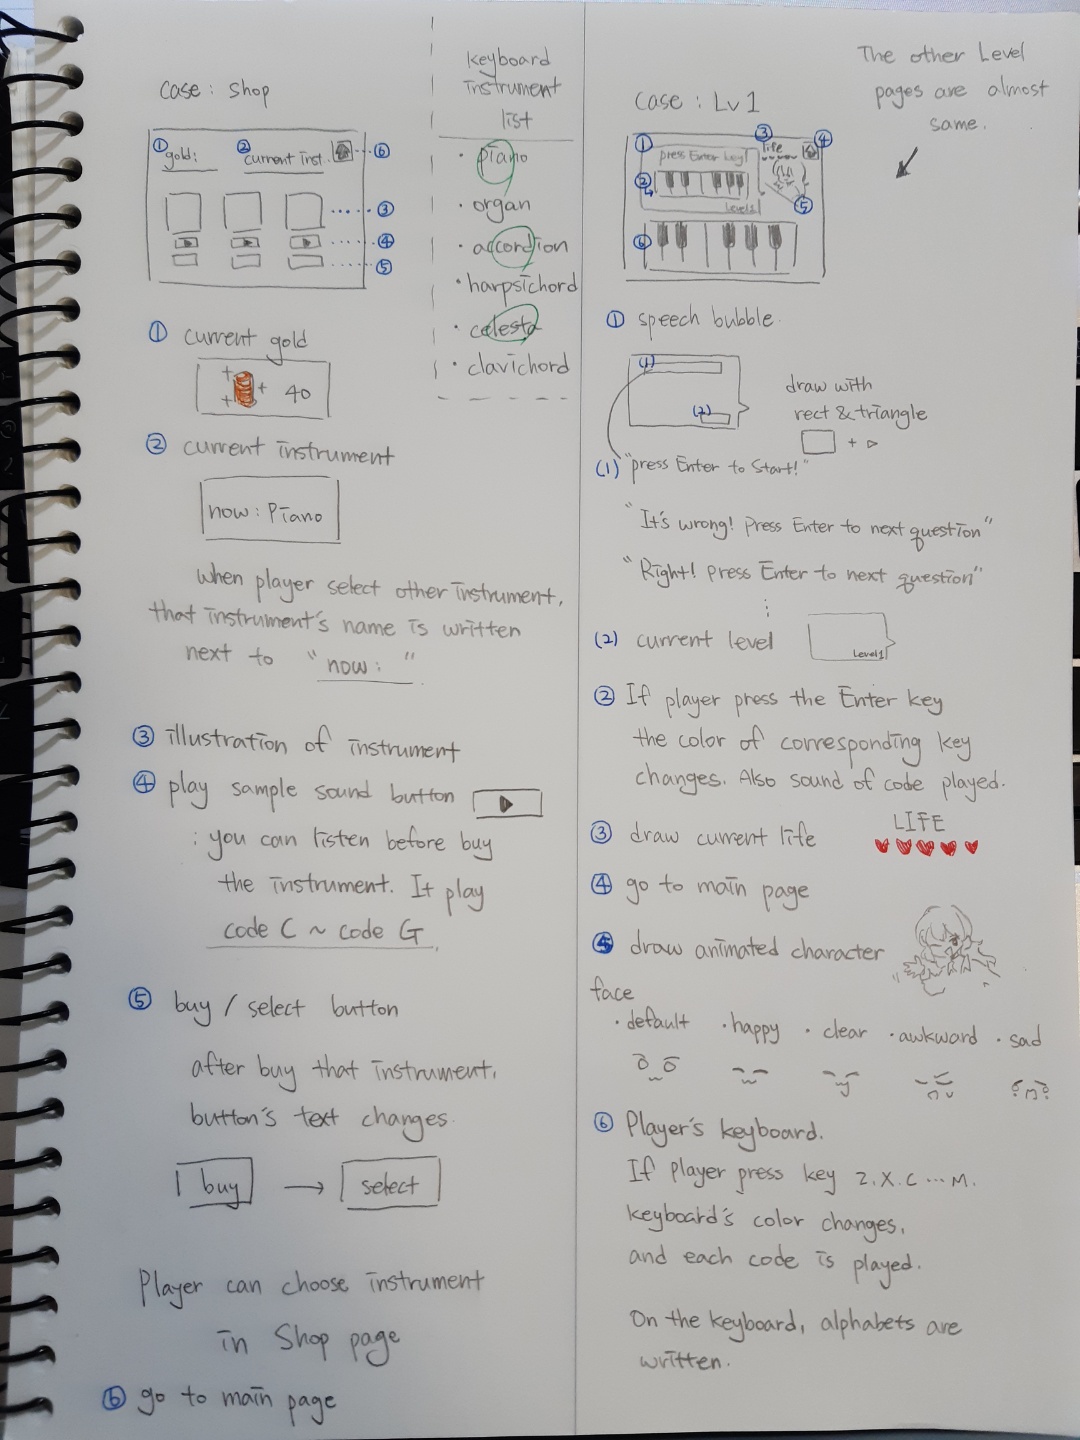 case : shop
① gold:
② current inst.
⑥
③
④
⑤
① current gold
40
② current instrument
now : Piano
when player select other instrument,
that instrument's name is written
next to "now : "
③ illustration of instrument
④ play sample sound button
: you can listen before buy
the instrument. It play
code C ~ code G
⑤ buy / select button
after buy that instrument,
button's text changes.
buy → select
Player can choose instrument
in Shop page
⑥ go to main page
keyboard
instrument
list
· piano
· organ
· accordion
· harpsichord
· celesta
· clavichord
The other Level
pages are almost
same.
case : Lv 1
①
press Enter key!
③
life
④
②
Level1
⑤
⑥
① speech bubble.
(1)
(2)
draw with
rect & triangle
+
(1) "press Enter to Start!"
"It's wrong! Press Enter to next question"
"Right! press Enter to next question"
(2) current level
Level1
② If player press the Enter key
the color of corresponding key
changes. Also sound of code played.
③ draw current life
LIFE
④ go to main page
⑤ draw animated character
face
· default · happy · clear · awkward · sad
⑥ Player's keyboard.
If player press key Z. X. C ... M.
keyboard's color changes,
and each code is played.
On the keyboard, alphabets are
written.